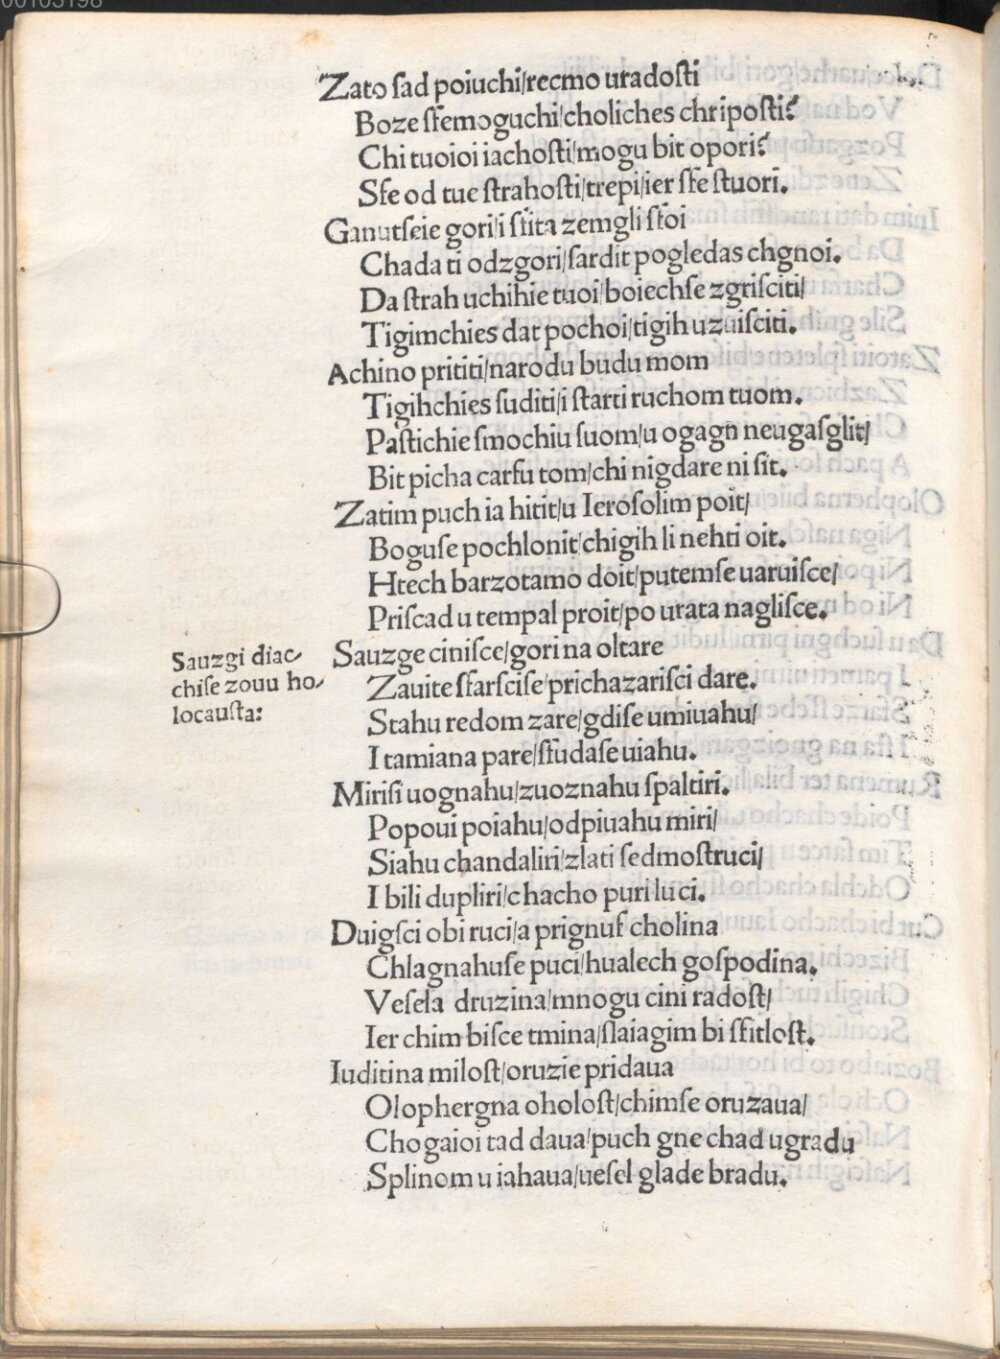 Zato ſad poiuchi/recmo uradoſti
Boze ſfemoguchi/choliches chripoſti?
Chi tuoioi iachoſti/mogu bit opori?
Sfe od tue ſtrahoſti/trepi/ier ſfe ſtuori.
Ganutſeie gori/i ſfita zemgli ſtoi
Chada ti odzgori/ſardit pogledas chgnoi.
Da ſtrah uchihie tuoi/boiechſe zgriſciti/
Tigimchies dat pochoi/tigih uzuiſciti.
Achino prititi/narodu budu mom
Tigihchies ſuditi/i ſtarti ruchom tuom.
Paſtichie ſmochiu ſuom/u ogagn neugaſglit/
Bit picha carfu tom/chi nigdare ni ſit.
Zatim puch ia hitit/u Ieroſolim poit/
Boguſe pochlonit/chigih li nehti oit.
Htech barzotamo doit/putemſe uaruiſce/
Priſcad u tempal proit/po urata nagliſce.
Sauzgi diac⸗
chiſe zouu ho⸗
locauſta:
Sauzge ciniſce/gori na oltare
Zauite ſfarſciſe/prichazariſci dare.
Stahu redom zare/gdiſe umiuahu/
I tamiana pare/ſfudaſe uiahu.
Miriſi uognahu/zuoznahu ſpaltiri.
Popoui poiahu/odpiuahu miri/
Siahu chandaliri/zlati ſedmoſtruci/
I bili dupliri/chacho puri luci.
Duigſci obi ruci/a prignuſ cholina
Chlagnahuſe puci/hualech goſpodina.
Veſela druzina/mnogu cini radoſt/
Ier chim biſce tmina/ſlaiagim bi ſfitloſt.
Iuditina miloſt/oruzie pridaua
Olophergna oholoſt/chimſe oruzaua/
Chogaioi tad daua/puch gne chad ugradu
Splinom u iahaua/ueſel glade bradu.